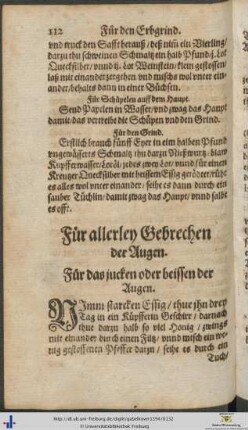 112 Für den Erbgrind.
vnd truck den Safft herauß / deß nim ein Vierling /
darzu thu schweinen Schmaltz ein halb Pfund / j. Lot
Quecksilber / vnnd ij. Lot Weinstein / klein gestossen /
laß mit einander zergehen vnd mischs wol vnter ein-
ander / behalts dann in einer Büchsen.
Für Schüpelen auff dem Haupt.
Send Papelen in Wasser / vnd zwag das Haupt
damit das vertreibt die Schüpen vnd den Grind.
Für den Grind.
Erstlich brauch fünff Eyer in ein halben Pfund
vngewässerts Schmaltz thu darzu Nießwurtz / blaw
Kupfferwasser / jedes zwey Lot / vnnd für einen
Kreutzer Quecksilber mit heissem Essig getödtet / rühr
es alles wol vnter einander / seihe es dann durch ein
sauber Tüchlin / damit zwag das Haupt / vnnd salbt
es offt.
Für allerley Gebrechen
der Augen.
Für das jucken oder beissen der
Augen.
NImm starcken Essig / thue jhn drey
Tag in ein Küpffern Geschirr / darnach
thue darzu halb so viel Honig / zwings
mit einander durch einen Filtz / vnnd misch ein we-
nig gestossenen Pfeffer darzu / seihe es durch ein
Tuch /
http://dl.ub.uni-freiburg.de/diglit/gabelkover1594/0132
© Universitätsbibliothek Freiburg